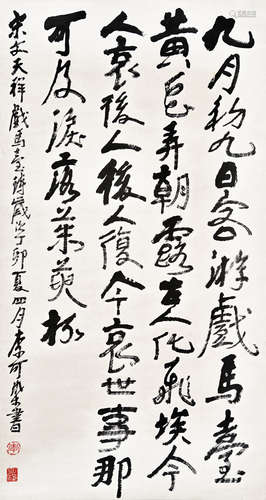 九月初九日客游戲馬臺
黃花弄朝露古人化飛埃今
人哀後人後人復今哀世事那
可及淚落茱萸杯
宋文天祥戲馬臺詩歲次丁卯夏四月康可書